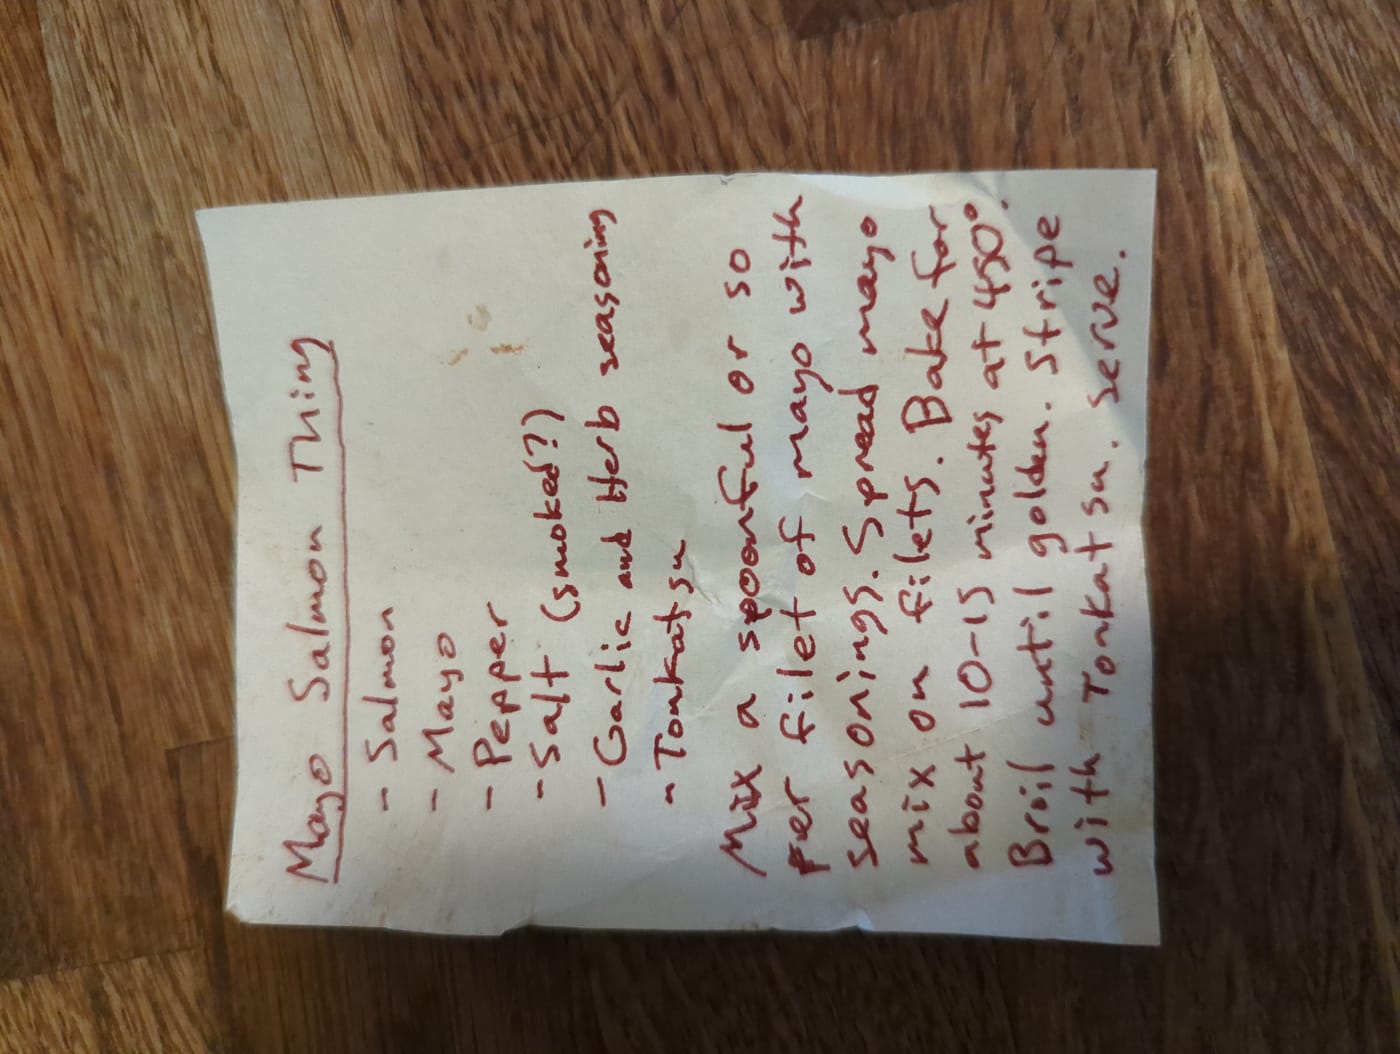 Mayo Salmon Thing
- Salmon
- Mayo
- Pepper
- Salt (smoked?)
- Garlic and Herb seasoning
- Tonkatsu
Mix a spoonful or so
per filet of mayo with
seasonings. Spread mayo
mix on filets. Bake for
about 10-15 minutes at 450°.
Broil until golden. Stripe
with Tonkatsu. Serve.